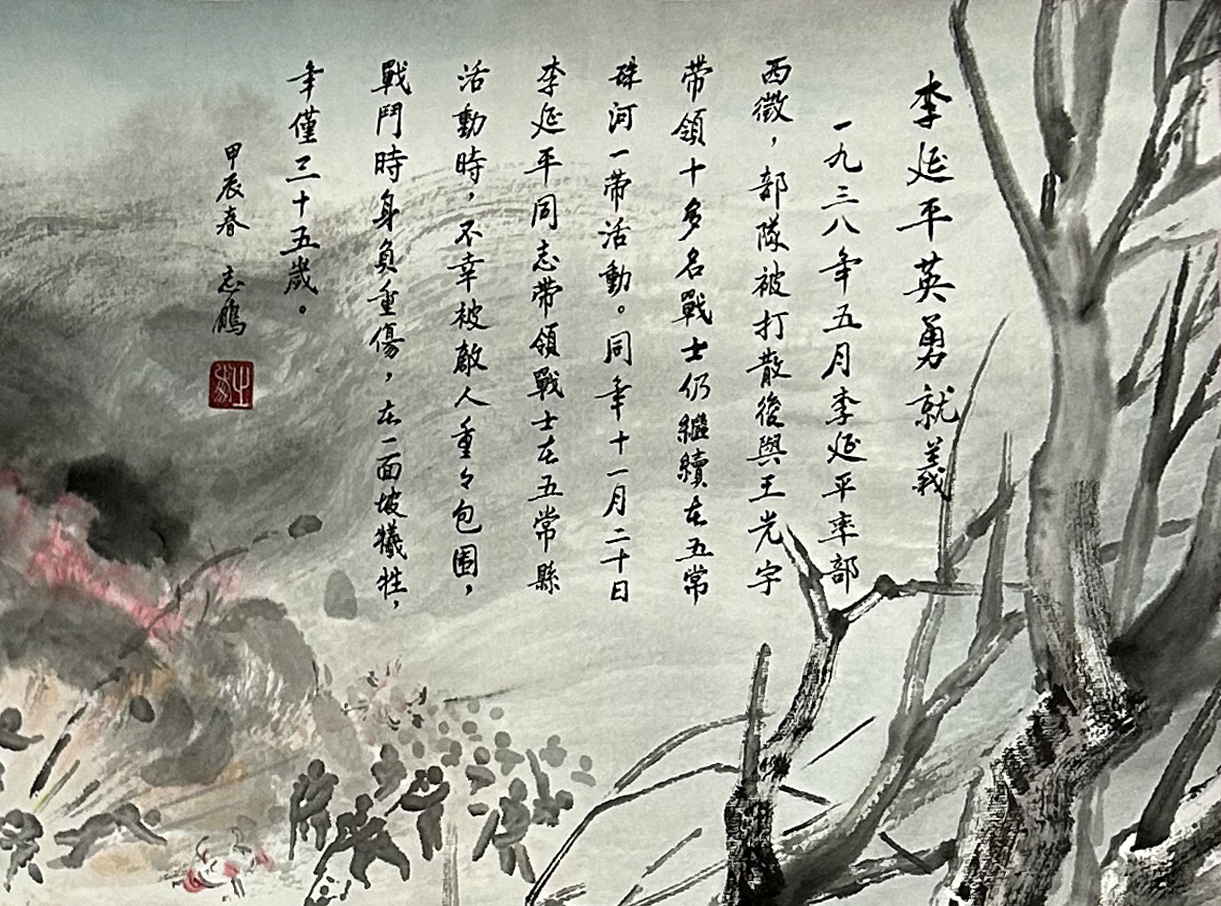 李延平英勇就義
一九三八年五月李延平率部
西徵，部隊被打散後與王光宇
带領十多名戰士仍繼續在五常
珠河一帶活動。同年十一月二十日
李延平同志带領戰士在五常縣
活動時，不幸被敵人重々包圍，
戰鬥時身負重傷，在一面坡犧牲，
年僅三十五歲。
甲辰春 志鵬